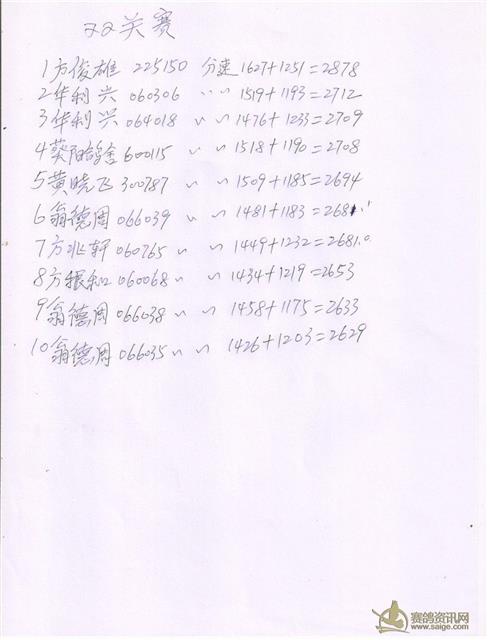 双关赛
1方俊雄 225150 分速1627+1251=2878
2华利兴 060306 〃 〃 1519+1193=2712
3华利兴 064018 〃 〃 1476+1233=2709
4葵阳鸽舍600115 〃 〃 1518+1190=2708
5黄晓飞300787 〃 〃 1509+1185=2694
6翁德周066039 〃 〃 1481+1183=2681.1
7方兆轩060765 〃 〃 1449+1232=2681.0
8方根和060068 〃 〃 1434+1219=2653
9翁德周066038 〃 〃 1458+1175=2633
10翁德周066035 〃 〃 1426+1203=2629
赛鸽资讯网
www.saige.com